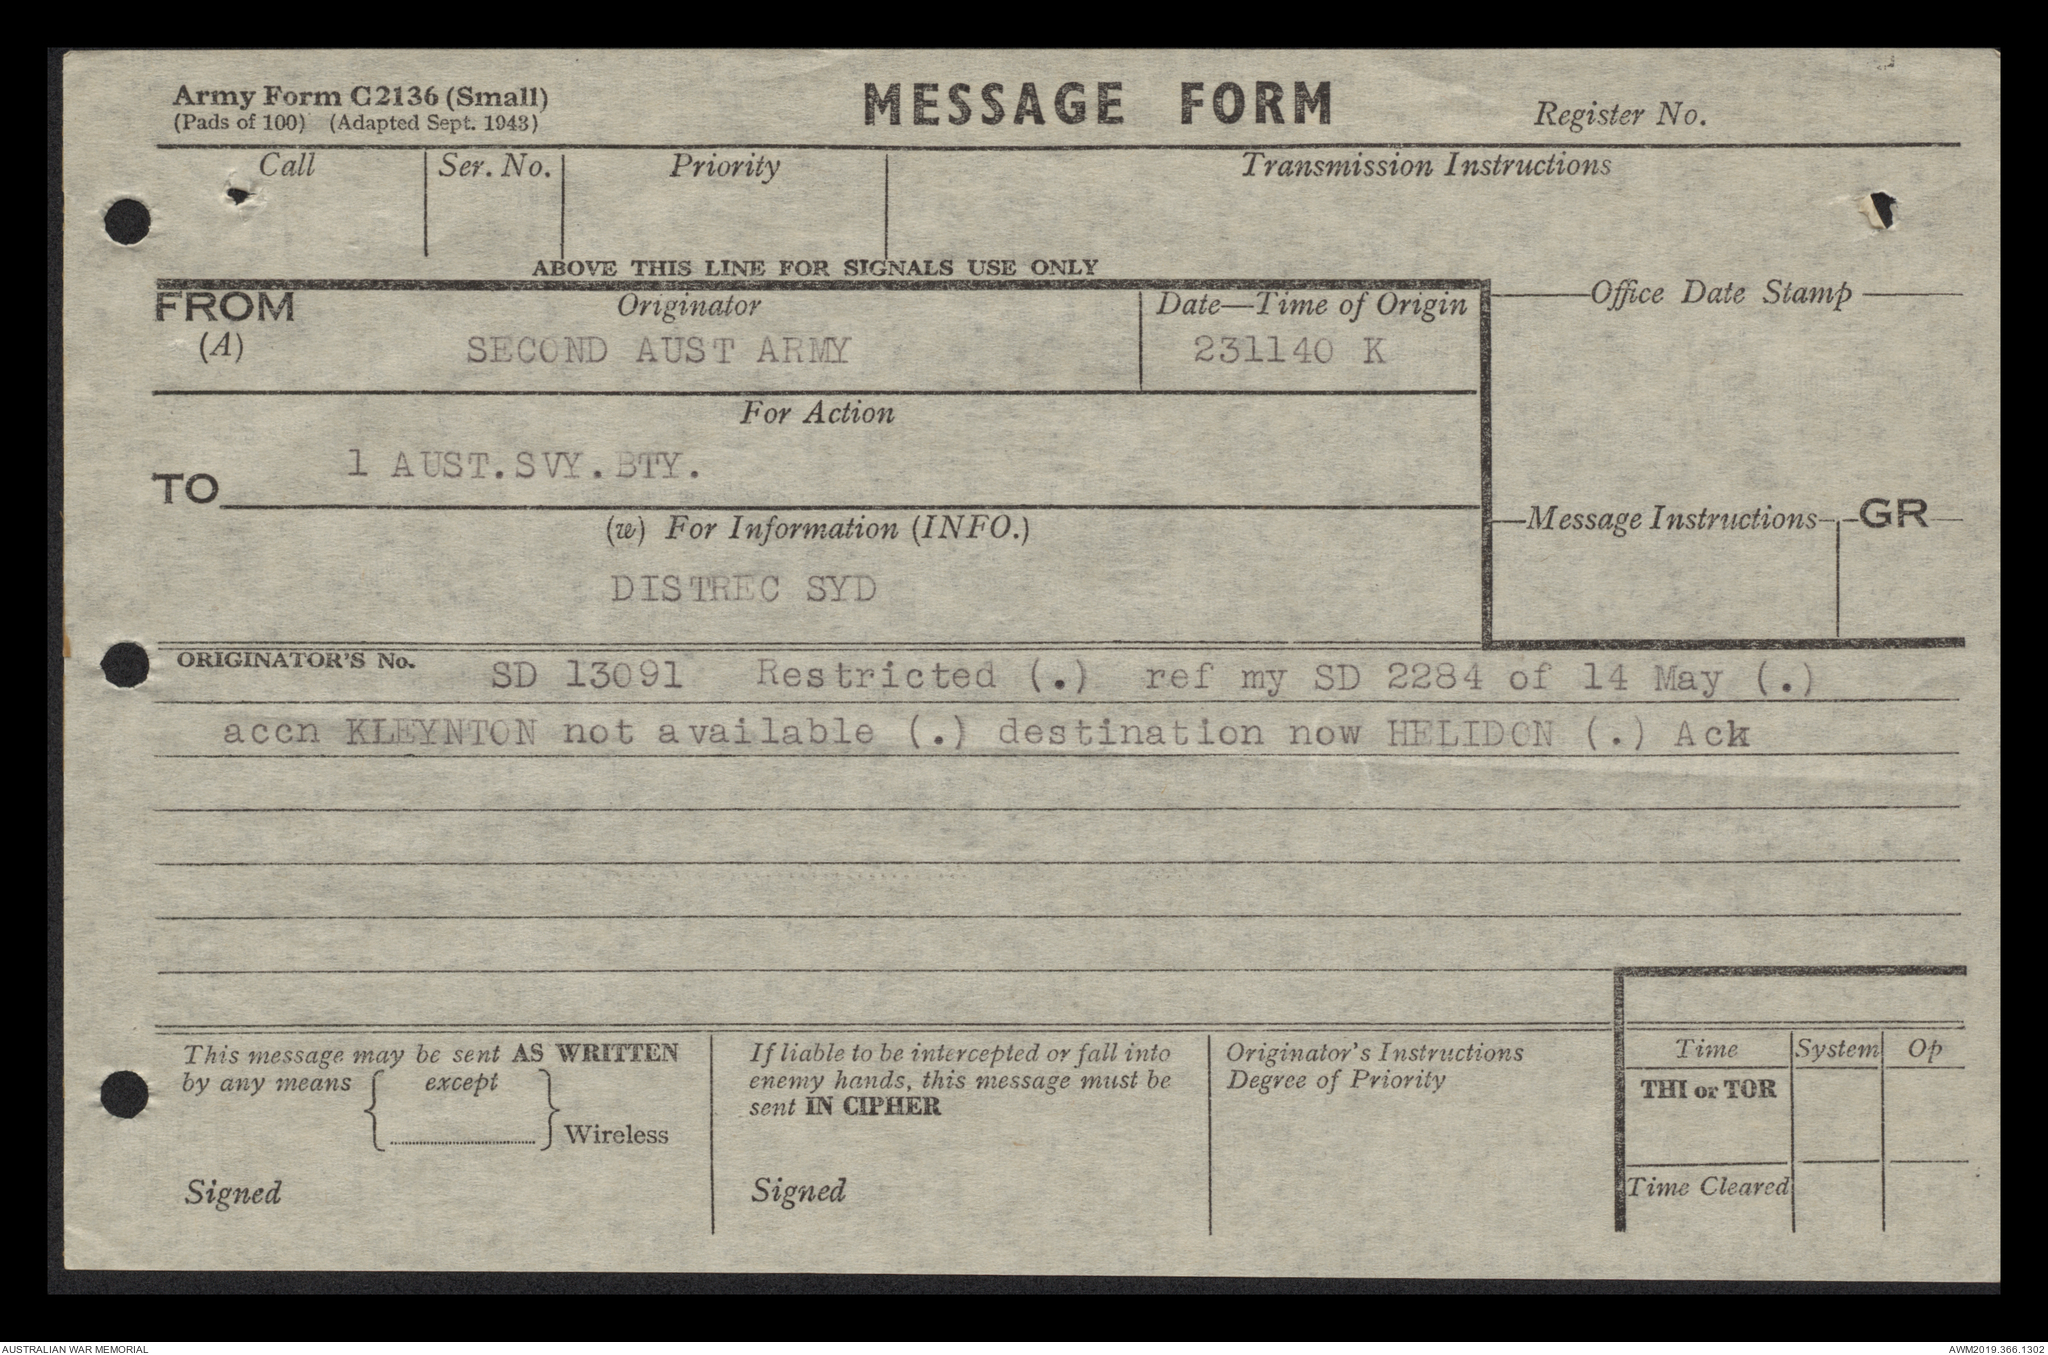 Army Form C2136 (Small)
(Pads of 100) (Adapted Sept. 1943)
MESSAGE FORM
Register No.
Call
Ser. No.
Priority
Transmission Instructions
ABOVE THIS LINE FOR SIGNALS USE ONLY
FROM
(A)
Originator
SECOND AUST ARMY
Date—Time of Origin
231140 K
Office Date Stamp
For Action
TO
1 AUST.SVY.BTY.
(w) For Information (INFO.)
DISTREC SYD
Message Instructions
GR
ORIGINATOR'S No. SD 13091 Restricted (.) ref my SD 2284 of 14 May (.)
accn KLEYNTON not available (.) destination now HELIDON (.) Ack
This message may be sent AS WRITTEN
by any means { except
} Wireless
Signed
If liable to be intercepted or fall into
enemy hands, this message must be
sent IN CIPHER
Signed
Originator's Instructions
Degree of Priority
Time
System
Op
THI or TOR
Time Cleared
AUSTRALIAN WAR MEMORIAL
AWM2019.366.1302